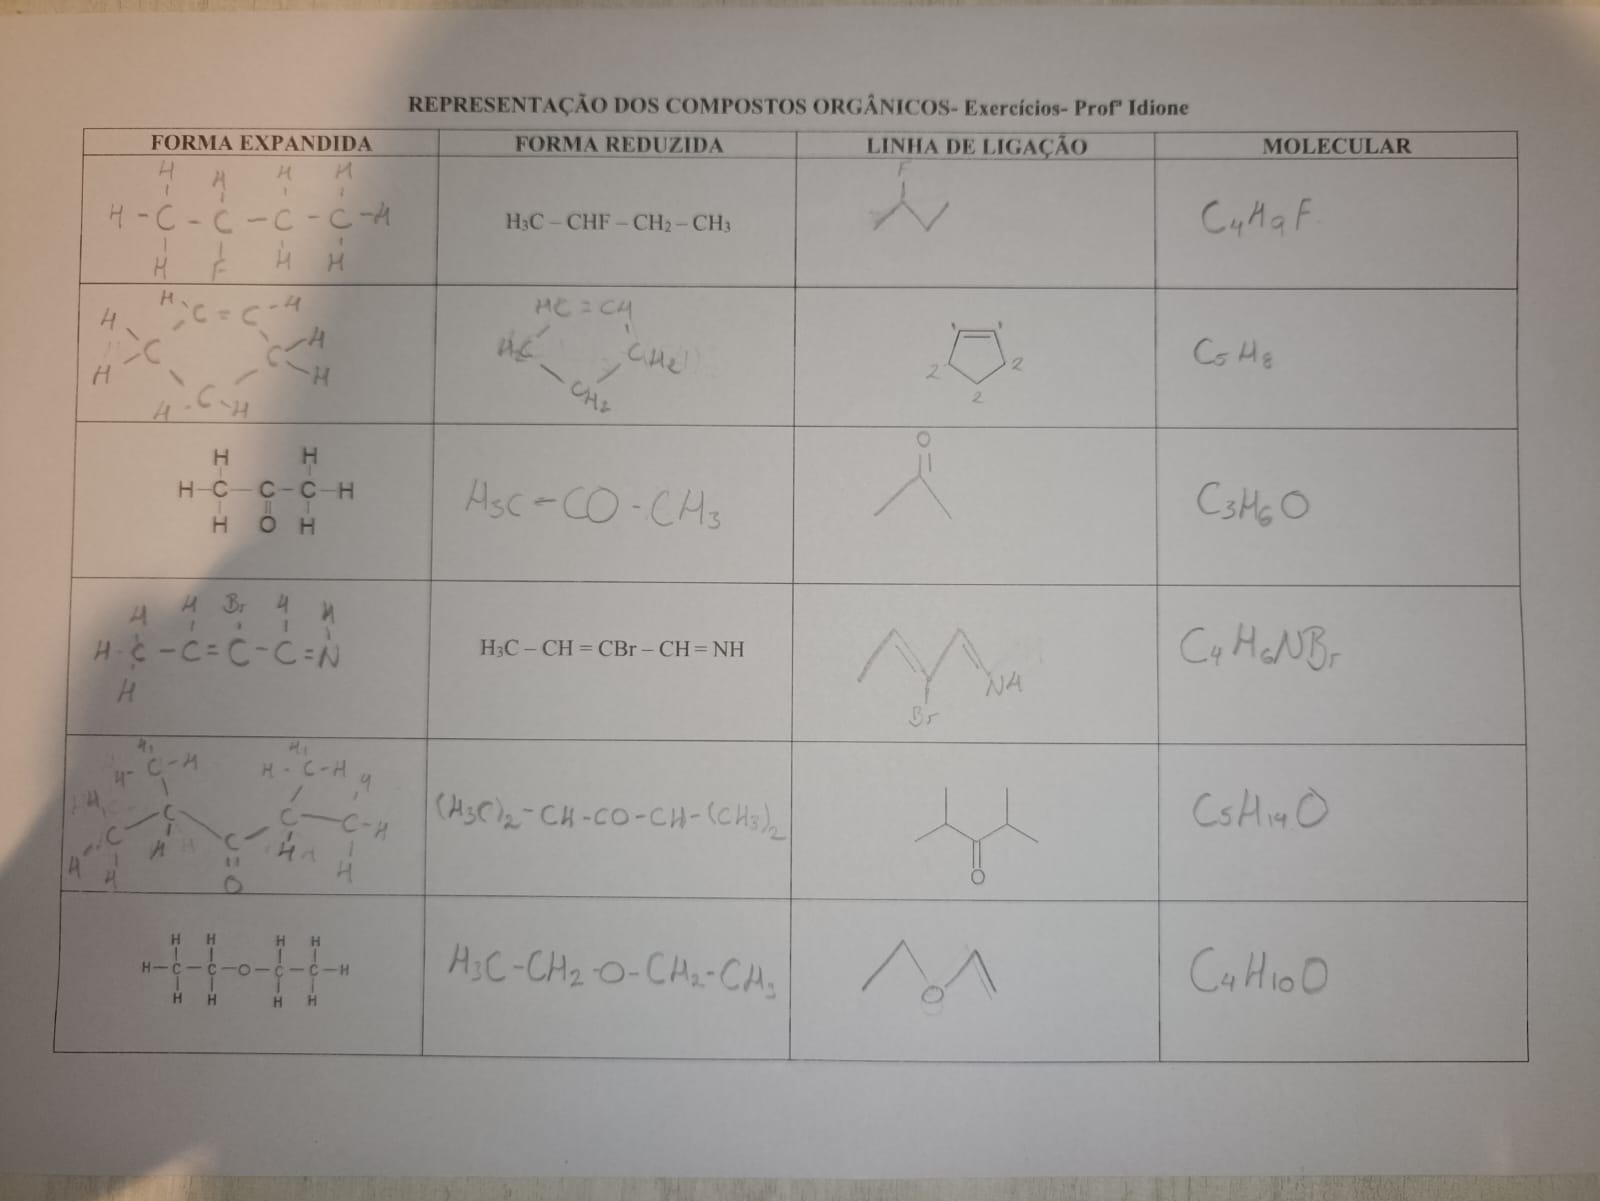 REPRESENTAÇÃO DOS COMPOSTOS ORGÂNICOS- Exercícios- Profª Idione
FORMA EXPANDIDA FORMA REDUZIDA LINHA DE LIGAÇÃO MOLECULAR
H H H H
H - C - C - C - C - H
H F H H
H₃C – CHF – CH₂ – CH₃
F
C₄H₉F
H C = C - H
H C C H
H H
H - C - H
HC = CH
H₂C CH₂
CH₂
2 2
2
C₅H₈
H H
H-C-C-C-H
H O H
H₃C - CO - CH₃
O
C₃H₆O
H H Br H H
H - C - C = C - C = N
H
H₃C – CH = CBr – CH = NH
NH
Br
C₄H₆NBr
H H
H - C - H H - C - H H
H C C C - H
C C
H H H H H
O
(H₃C)₂ - CH - CO - CH - (CH₃)₂
O
C₅H₁₄O
H H H H
H-C-C-O-C-C-H
H H H H
H₃C - CH₂ - O - CH₂ - CH₃
O
C₄H₁₀O